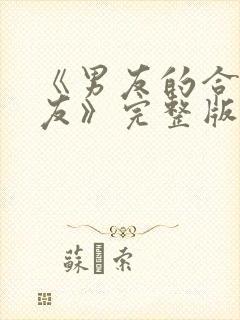 《男友的合
友》完整版
蘇 索